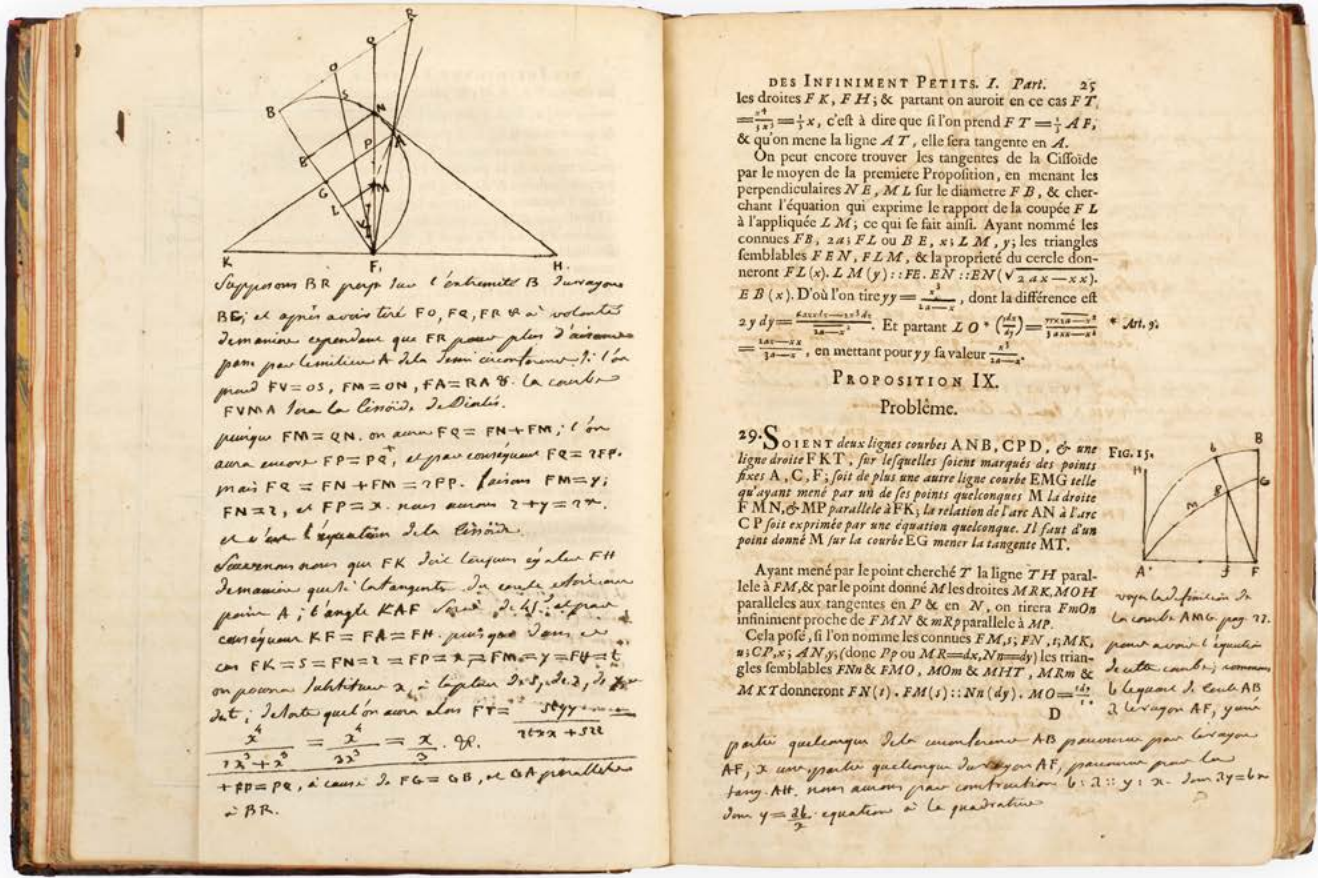 R
Q
O
S
B
N
P
A
E
G
M
L
T
V
K
F.
H.
Supposons BR perp. sur l'extremité B du rayon
BG; et après avoir tiré FO, FQ, FR &c à volonté
demaniere cependant que FR pour plus d'aisance
passe par le milieu A de la demi circonference; si l'on
prend FV=OS, FM=QN, FA=RA &c. la courbe
FVMA sera la Cissoïde de Dioclès.
puisque FM=QN. on aura FQ=FN+FM; l'on
aura encore FP=PQ+, et par conséquent FQ=2FP.
mais FQ=FN+FM=2FP. faisons FM=y;
FN=z, et FP=x. nous aurons z+y=2x.
et c'est l'équation de la Cissoïde.
Souvenons nous que FK doit toujours égaler FH
demaniere que si la tangente du cercle est
point A; l'angle KAF sera de 45d et par
conséquent KF=FA=FH. puisque dans ce
cas FK=s=FN=z=FP=x=FM=y=FH=t
on pourra substituer x à la place de s, de z, de y
de t; desorte que l'on aura alors FT= styy
x⁴ / 2x³+x³ = x⁴ / 3x³ = x / 3. &c.
+ FP=PQ, à cause de FG=GB, et GA parallele
à BR.
DES INFINIMENT PETITS. I. Part. 25
les droites FK, FH; & partant on auroit en ce cas FT
= x⁴/3x³ = ⅓x, c'est à dire que si l'on prend FT = ⅓AF,
& qu'on mene la ligne AT, elle sera tangente en A.
On peut encore trouver les tangentes de la Cissoïde
par le moyen de la premiere Proposition, en menant les
perpendiculaires NE, ML sur le diametre FB, & cher-
chant l'équation qui exprime le rapport de la coupée FL
à l'appliquée LM; ce qui se fait ainsi. Ayant nommé les
connues FB, 2a; FL ou BE, x; LM, y; les triangles
semblables FEN, FLM, & la proprieté du cercle don-
neront FL(x). LM(y) :: FE. EN :: EN(√2ax—xx).
EB(x). D'où l'on tire yy = x³/2a—x, dont la différence est
2ydy = 6axxdx—2x³dx/2a—x². Et partant LO* (ydx/dy) = yy×2a—x²/3axx—x³ * Art. 9.
= 2ax—xx/3a—x, en mettant pour yy sa valeur x³/2a—x.
PROPOSITION IX.
Problême.
29. SOIENT deux lignes courbes ANB, CPD, & une
ligne droite FKT, sur lesquelles soient marqués des points
fixes A, C, F; soit de plus une autre ligne courbe EMG telle
qu'ayant mené par un de ses points quelconques M la droite
FMN, & MP parallele à FK; la relation de l'arc AN à l'arc
CP soit exprimée par une équation quelconque. Il faut d'un
point donné M sur la courbe EG mener la tangente MT.
FIG. 15.
B
b
H
G
g
M
A
f
F
Ayant mené par le point cherché T la ligne TH paral-
lele à FM, & par le point donné M les droites MRK, MOH
paralleles aux tangentes en P & en N, on tirera FmOn
infiniment proche de FMN & mRp parallele à MP.
Cela posé, si l'on nomme les connues FM, s; FN, t; MK,
u; CP, x; AN, y; (donc Pp ou MR=dx, Nn=dy) les trian-
gles semblables FNn & FMO, MOm & MHT, MRm &
MKT donneront FN(t). FM(s) :: Nn(dy). MO = sdy/t.
D
voyez la definition de
la courbe AMG. pag. 22.
pour avoir l'équation
de cette courbe; nommons
b le quart de cercle AB
a le rayon AF, y une
partie quelconque de la circonference AB parcourue par le rayon
AF, x une partie quelconque du rayon AF, parcourue par la
tang. AH. nous aurons par construction b : a :: y : x. donc ay=bx
donc y = equation à la quadratrice